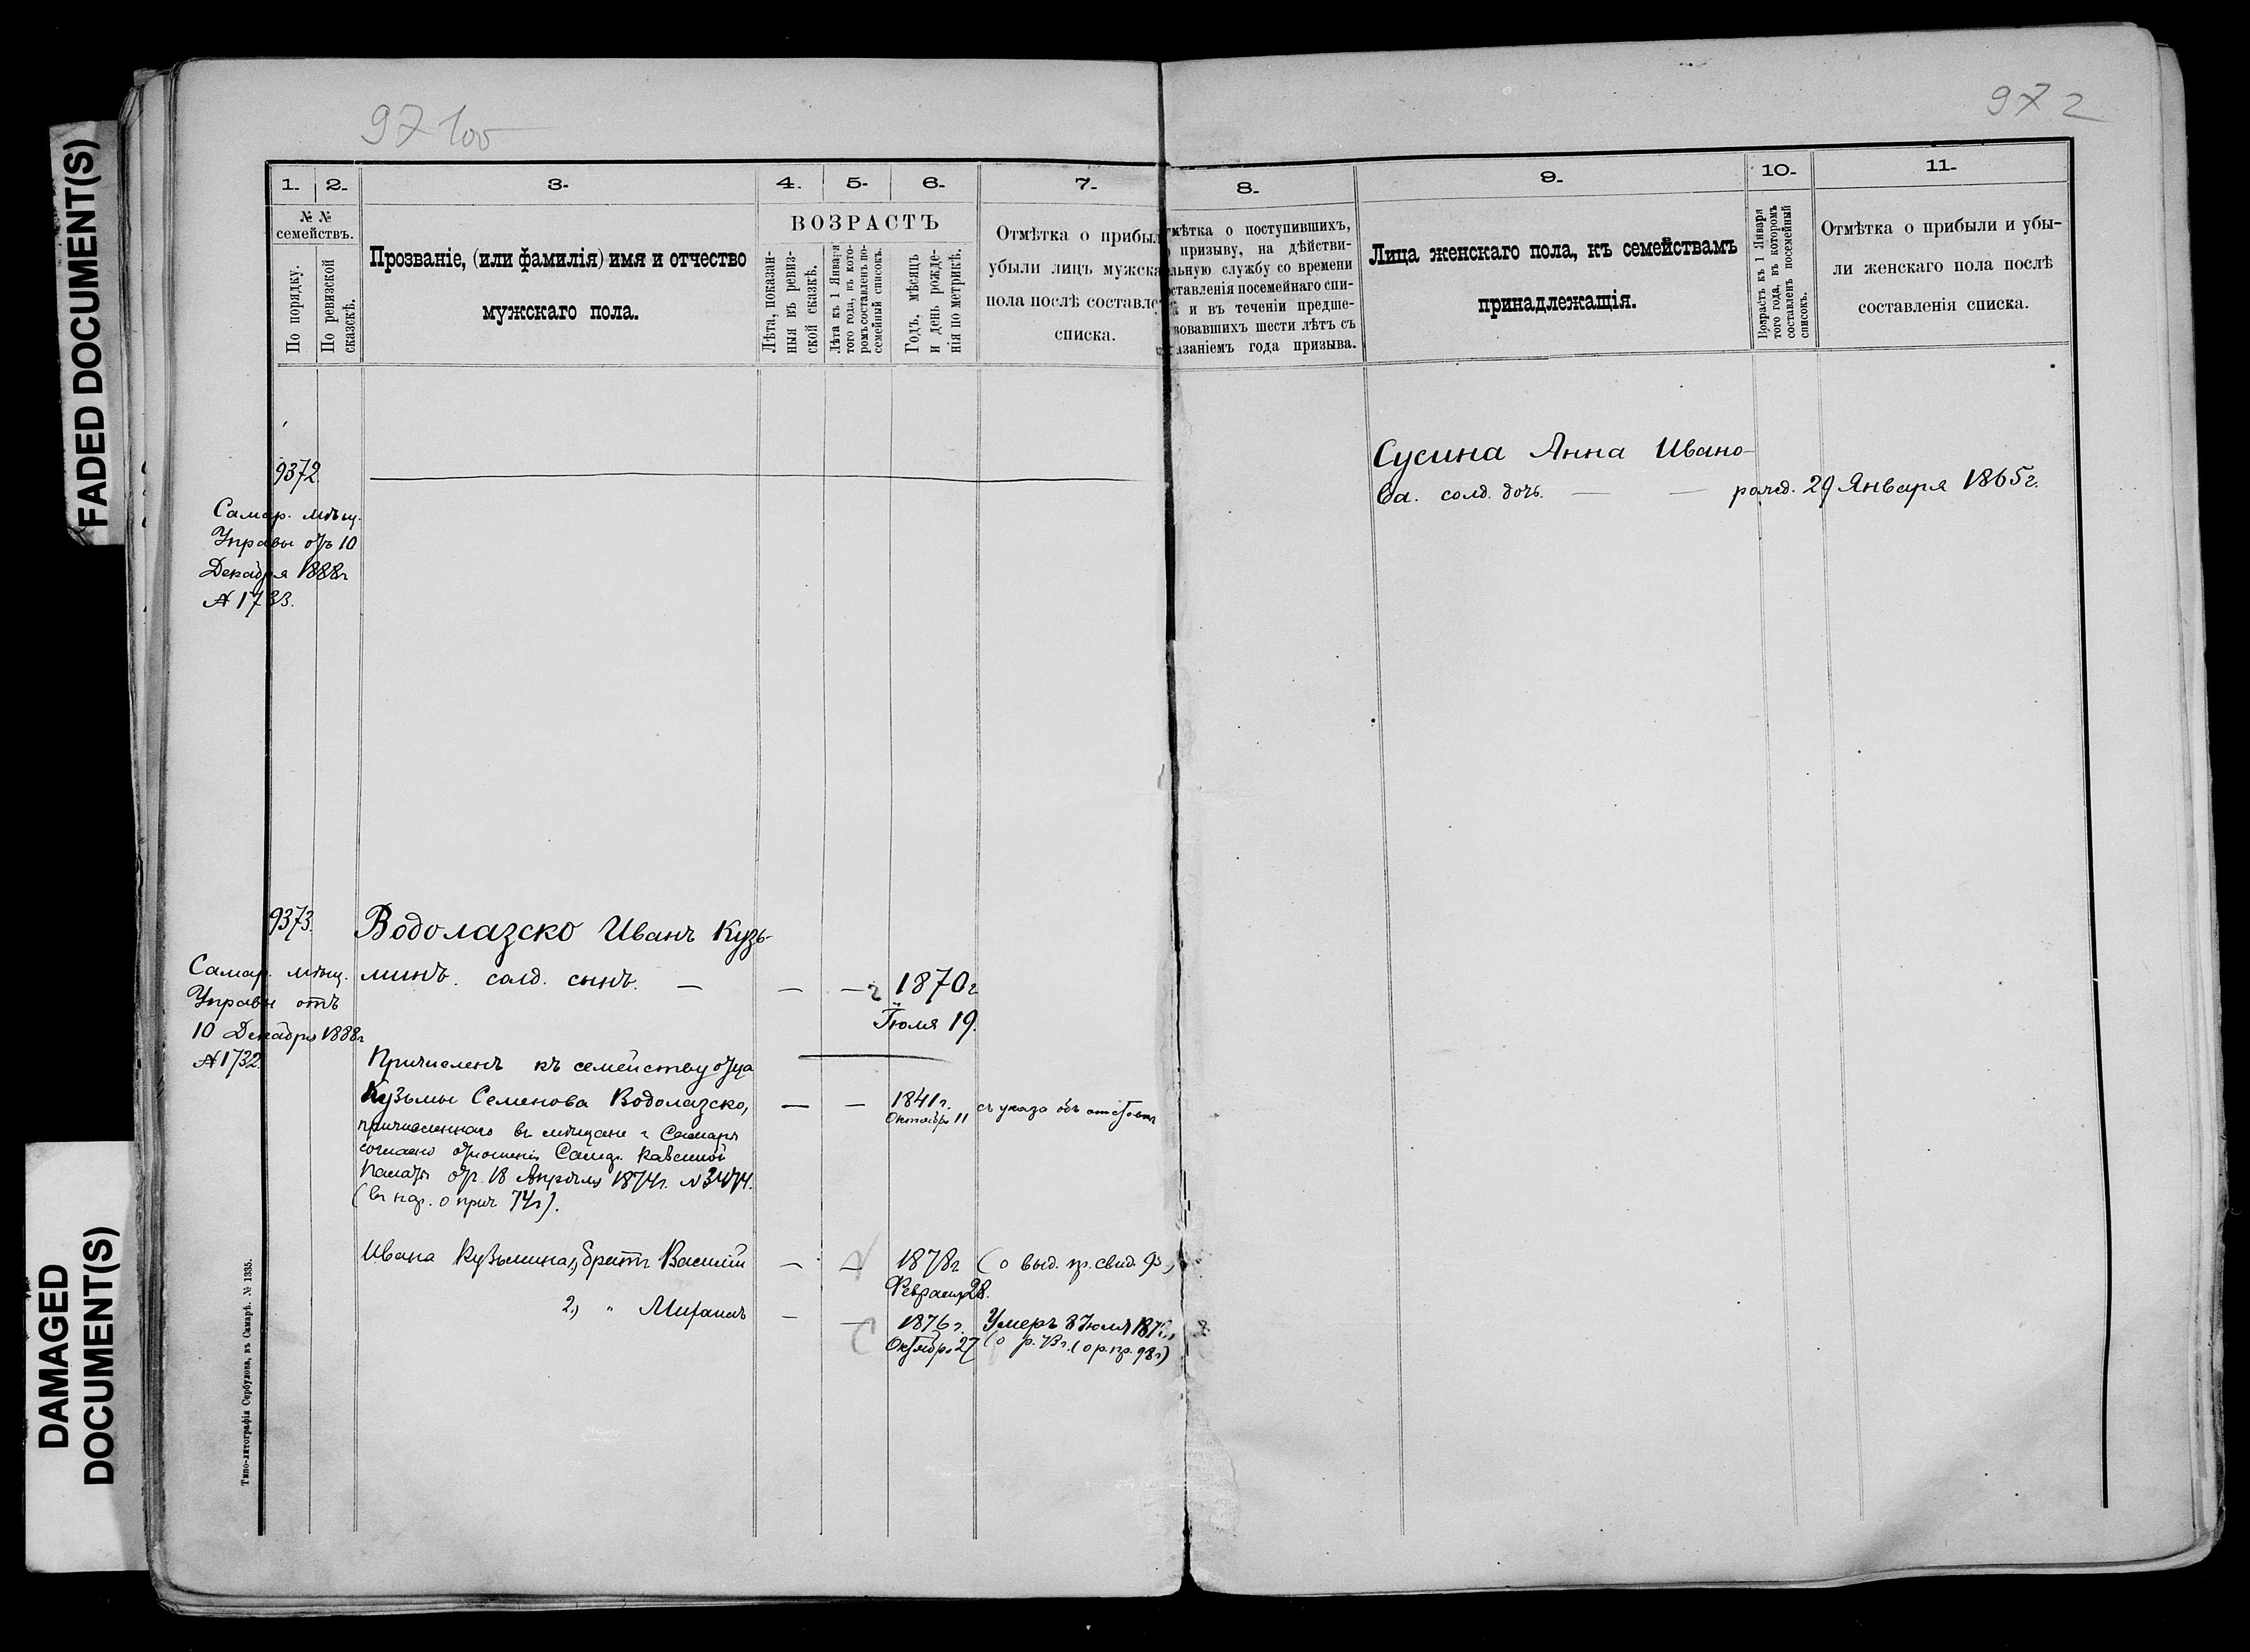 FADED DOCUMENT(S)
DAMAGED
DOCUMENT(S)
97 100
972
1.
2.
3.
4.
5.
6.
7.
8.
9.
10.
11.
№ №
семействъ.
По порядку.
По ревизской
сказскѣ.
Прозваніе, (или фамилія) имя и отчество
мужскаго пола.
ВОЗРАСТЪ
Лѣта, показан-
ныя въ ревиз-
ской сказкѣ.
Лѣта къ 1 Января
того года, въ кото-
ромъ составленъ по-
семейный списокъ.
Годъ, мѣсяцъ
и день рожде-
нія по метрикѣ.
Отмѣтка о прибыл
убыли лицъ мужска
пола послѣ составле
списка.
мѣтка о поступившихъ,
призыву, на дѣйстви-
льную службу со времени
ставленія посемейнаго спи-
и въ теченіи предше-
вовавшихъ шести лѣтъ съ
азаніемъ года призыва.
Лица женскаго пола, къ семействамъ
принадлежащія.
Возрастъ къ 1 Января
того года, въ которомъ
составленъ посемейный
списокъ.
Отмѣтка о прибыли и убы-
ли женскаго пола послѣ
составленія списка.
9372.
Самар. мѣщ.
Управы отъ 10
Декабря 1888г
№ 1733.
Сусина Анна Ивано-
ва. солд. дочь. — — рожд. 29 Января 1865г.
9373.
Самар. мѣщ.
Управы отъ
10 Декабря 1888г
№ 1732.
Водолазско Иванъ Кузь-
минъ. солд. сынъ. — — — 1870г
Іюля 19.
Причисленъ къ семейству отца
Кузьмы Семенова Водолазско, — — 1841г. съ указа объ отставкѣ
Октября 11
причисленнаго въ мѣщане г Самары
согласно отношенія Самар. Казенной
Палаты от. 18 Апрѣля 1874г. №3474.
(въ нар. о прич 74г).
Ивана Кузьмина 1, братъ Василій — — 1878г (о выд. пр. свид. 9
Февраля 28.
2., „ Михаилъ — — 1876г. Умеръ 8 Іюля 187
Октября 27 (о р. пр. 98г)
Типо-литографія Сербулова, въ Самарѣ. № 1335.